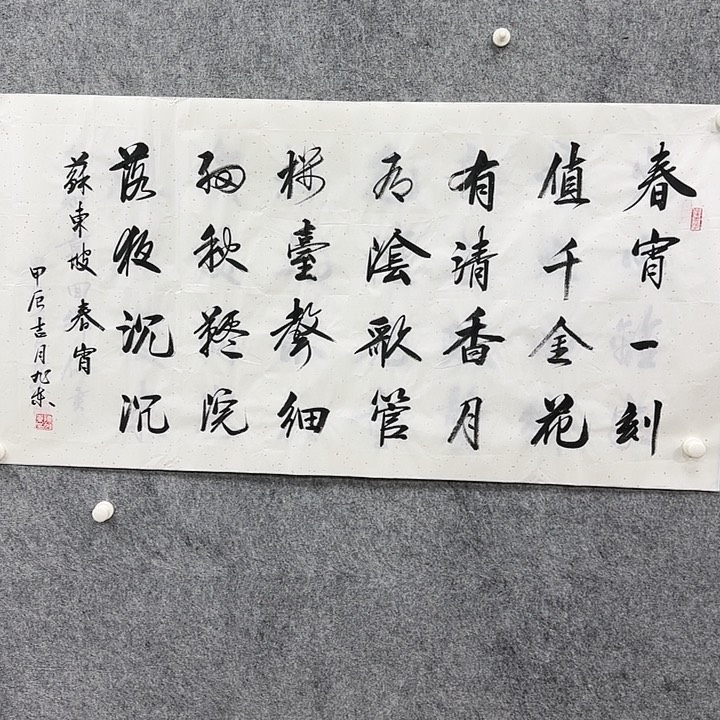 春宵一刻
值千金花
有請香月
有陰歌管
樓臺聲細
細秋韆院
落夜沉沉
蘇東坡春宵
甲辰吉月旭东